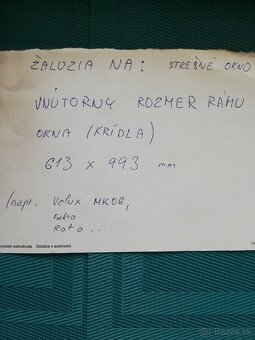 ŽALUZIA NA: STREŠNÉ OKNO
VNÚTORNÝ ROZMER RÁMU
OKNA (KRÍDLA)
613 x 993 mm
(napr. Velux MK06,
Fakro
Roto ....
Doložka o autorizácii
bazos.sk